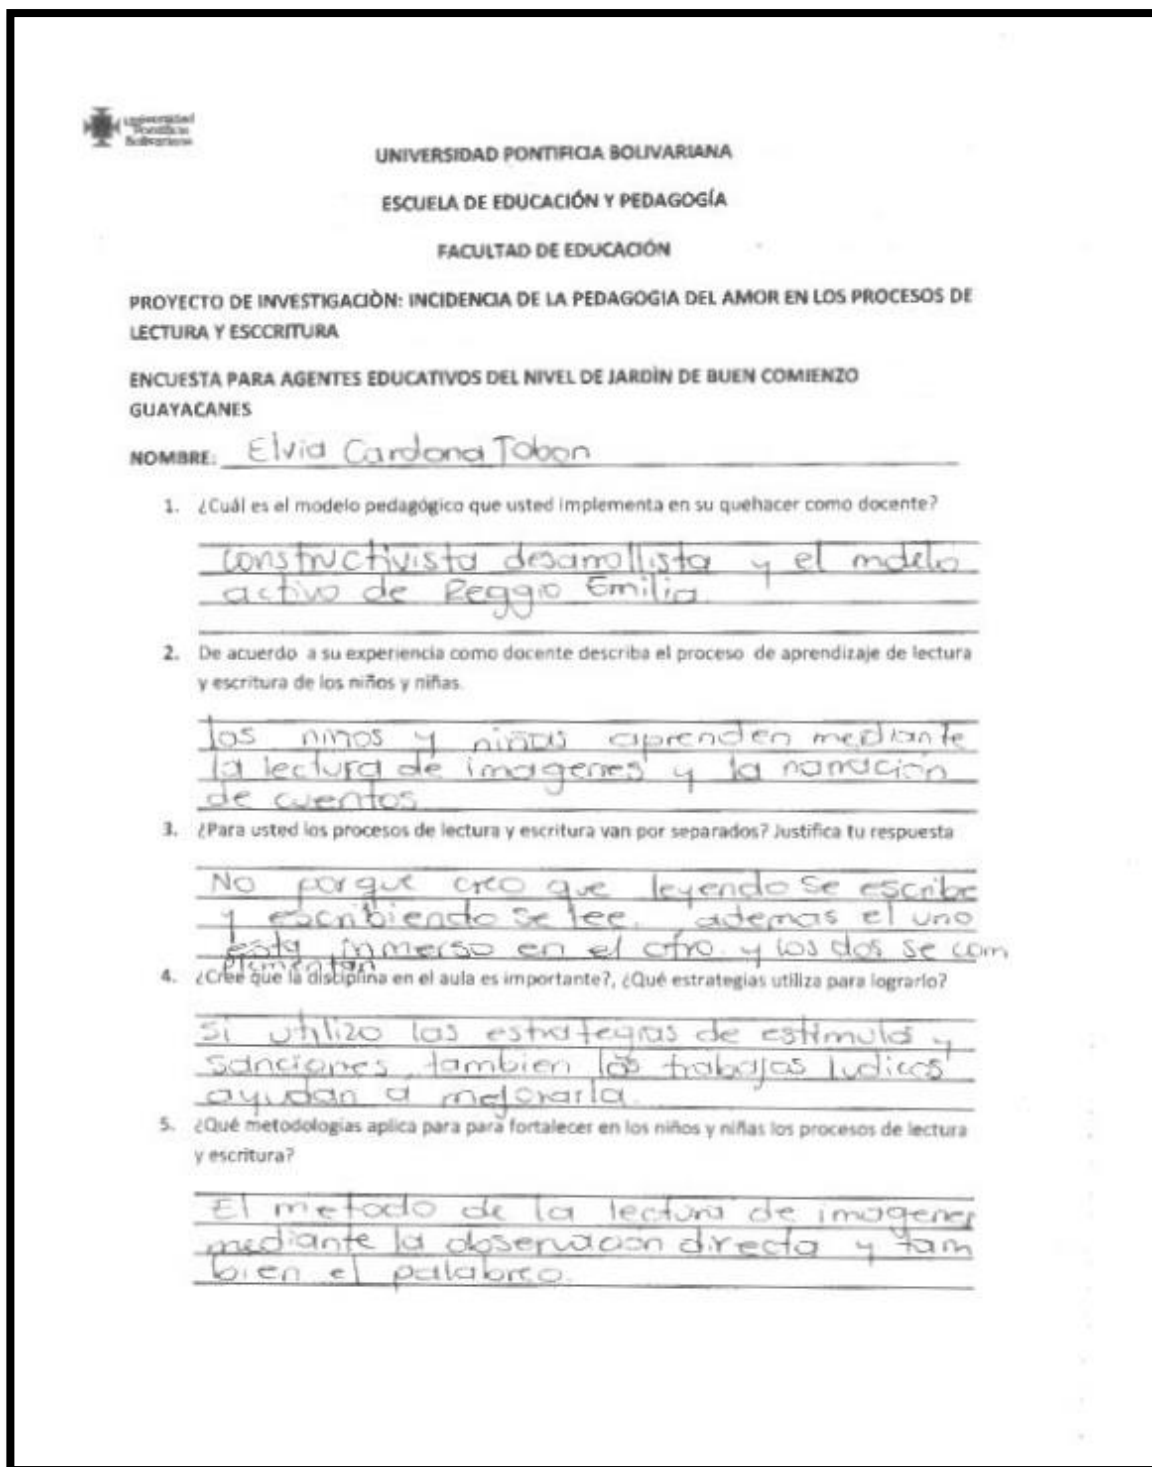 Universidad
Pontificia
Bolivariana
UNIVERSIDAD PONTIFICIA BOLIVARIANA
ESCUELA DE EDUCACIÓN Y PEDAGOGÍA
FACULTAD DE EDUCACIÓN
PROYECTO DE INVESTIGACIÒN: INCIDENCIA DE LA PEDAGOGIA DEL AMOR EN LOS PROCESOS DE
LECTURA Y ESCCRITURA
ENCUESTA PARA AGENTES EDUCATIVOS DEL NIVEL DE JARDÌN DE BUEN COMIENZO
GUAYACANES
NOMBRE: Elvia Cardona Tobon
1. ¿Cuál es el modelo pedagógico que usted implementa en su quehacer como docente?
constructivista desarrollista y el mdelo
activo de Reggio Emilia.
2. De acuerdo a su experiencia como docente describa el proceso de aprendizaje de lectura
y escritura de los niños y niñas.
los ninos y niñas aprenden mediante
la lectura de imagenes y la narración
de cuentos
3. ¿Para usted los procesos de lectura y escritura van por separados? Justifica tu respuesta
No porque creo que leyendo se escribe
y escribiendo se lee. ademas el uno
esta inmerso en el otro. y los dos se com
plementan
4. ¿Cree que la disciplina en el aula es importante?, ¿Qué estrategias utiliza para lograrlo?
si utilizo las estrategias de estimulos y
sanciones, tambien los trabajos ludicos
ayudan a mejorarla.
5. ¿Qué metodologías aplica para para fortalecer en los niños y niñas los procesos de lectura
y escritura?
El metodo de la lectura de imagenes
mediante la observacion directa y tam
bien el palabreo.